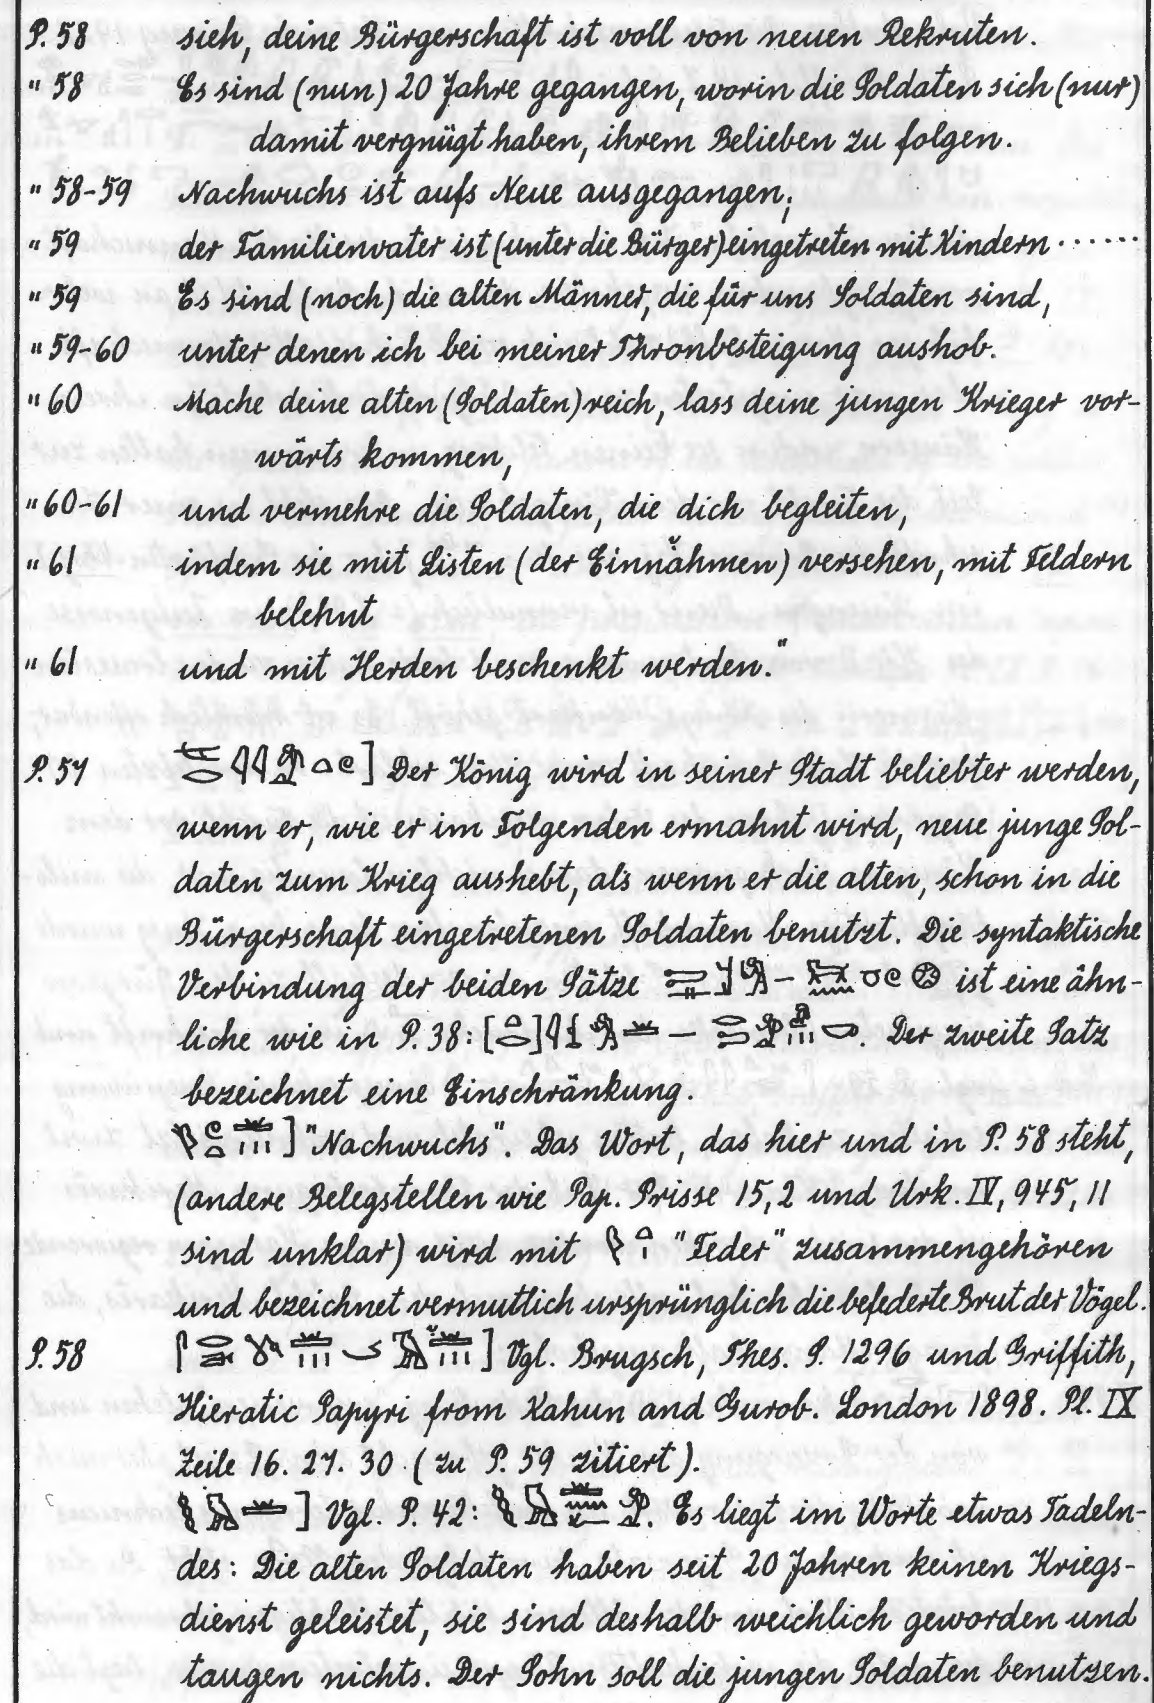 P. 58 sieh, deine Bürgerschaft ist voll von neuen Rekruten.
" 58 Es sind (nun) 20 Jahre gegangen, worin die Soldaten sich (nur)
damit vergnügt haben, ihrem Belieben zu folgen.
" 58-59 Nachwuchs ist aufs Neue ausgegangen,
" 59 der Familienvater ist (unter die Bürger) eingetreten mit Kindern ......
" 59 Es sind (noch) die alten Männer, die für uns Soldaten sind,
" 59-60 unter denen ich bei meiner Thronbesteigung aushob.
" 60 Mache deine alten (Soldaten) reich, lass deine jungen Krieger vor-
wärts kommen,
" 60-61 und vermehre die Soldaten, die dich begleiten,
" 61 indem sie mit Listen (der Einnahmen) versehen, mit Feldern
belehnt
" 61 und mit Herden beschenkt werden."
P. 57 ] Der König wird in seiner Stadt beliebter werden,
wenn er, wie er im Folgenden ermahnt wird, neue junge Sol-
daten zum Krieg aushebt, als wenn er die alten, schon in die
Bürgerschaft eingetretenen Soldaten benutzt. Die syntaktische
Verbindung der beiden Sätze – ist eine ähn-
liche wie in P. 38: [ ] – . Der zweite Satz
bezeichnet eine Einschränkung.
] "Nachwuchs". Das Wort, das hier und in P. 58 steht,
(andere Belegstellen wie Pap. Prisse 15,2 und Urk. IV, 945, 11
sind unklar) wird mit "Feder" zusammengehören
und bezeichnet vermutlich ursprünglich die befederte Brut der Vögel.
P. 58 ] Vgl. Brugsch, Thes. S. 1296 und Griffith,
Hieratic Papyri from Kahun and Gurob. London 1898. Pl. IX
Zeile 16. 27. 30. (zu P. 59 zitiert).
] Vgl. P. 42: . Es liegt im Worte etwas Tadeln-
des: Die alten Soldaten haben seit 20 Jahren keinen Kriegs-
dienst geleistet, sie sind deshalb weichlich geworden und
taugen nichts. Der Sohn soll die jungen Soldaten benutzen.